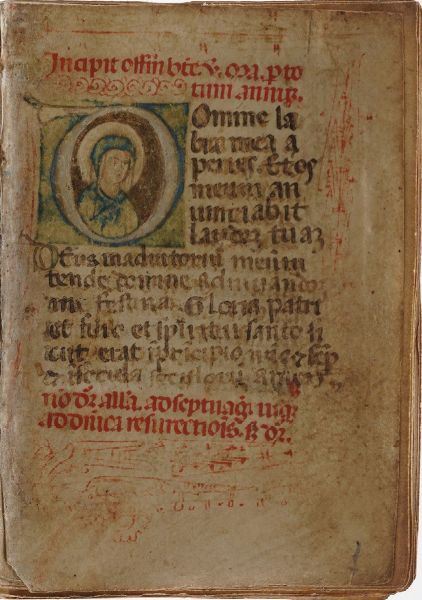 Incipit offm bte v. ma. p to
tum annuz.
Domine la
bia mea a
peries. Et os
meum an
unciabit
laudez tuaz
Deus in adiutoriu meum
tende domine ad iuvando
me festina. Gloria patri
et filio et spiritui santo si
cut erat principio
secula seculorum Amen
dr alla. ad septuag usqz
ad dnica resurectiois.